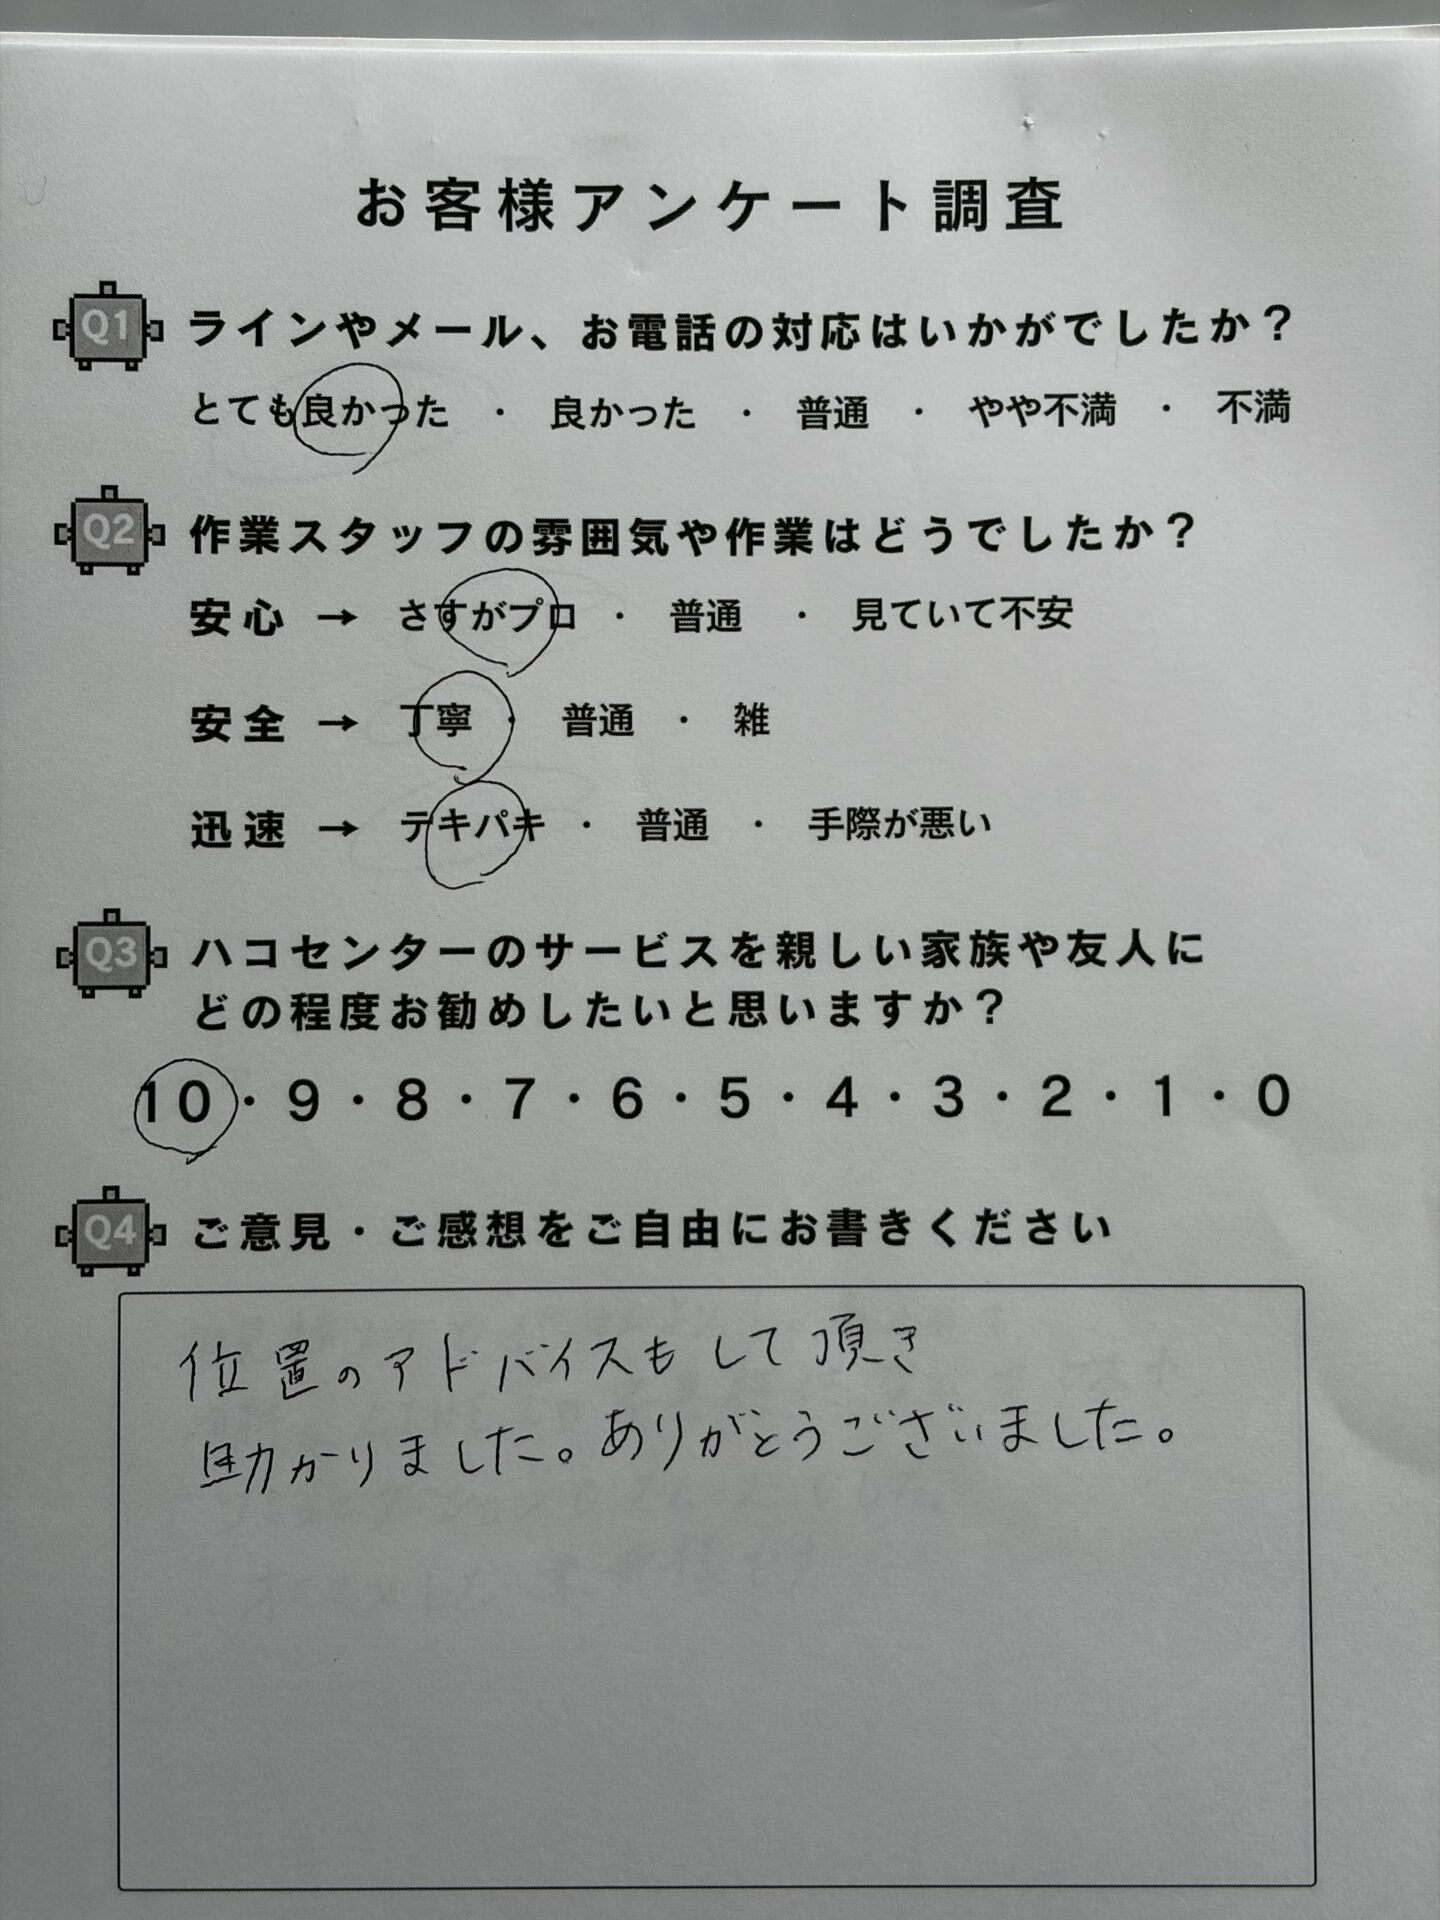 お客様アンケート調査
Q1 ラインやメール、お電話の対応はいかがでしたか？
とても良かった ・ 良かった ・ 普通 ・ やや不満 ・ 不満
Q2 作業スタッフの雰囲気や作業はどうでしたか？
安心 → さすがプロ ・ 普通 ・ 見ていて不安
安全 → 丁寧 ・ 普通 ・ 雑
迅速 → テキパキ ・ 普通 ・ 手際が悪い
Q3 ハコセンターのサービスを親しい家族や友人に
どの程度お勧めしたいと思いますか？
10・9・8・7・6・5・4・3・2・1・0
Q4 ご意見・ご感想をご自由にお書きください
位置のアドバイスもして頂き
助かりました。ありがとうございました。